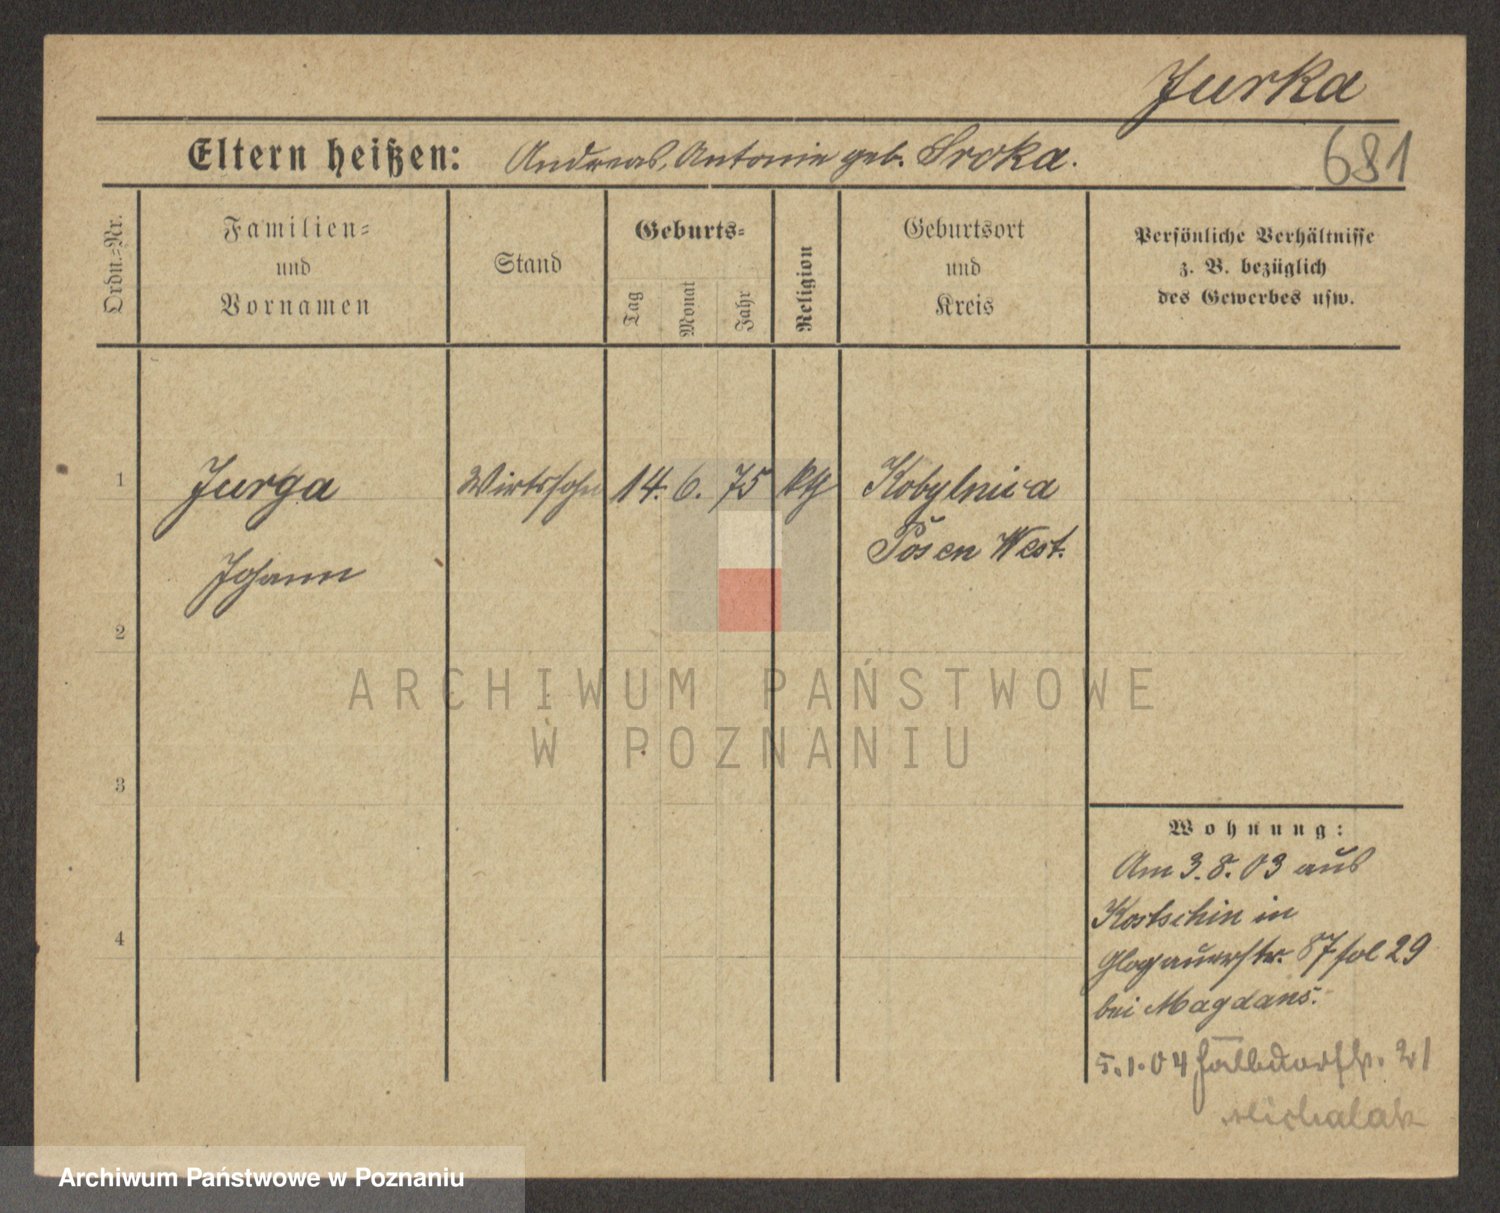 Jurka
Eltern heißen: Andreas, Antonie geb. Sroka.
681
Ordn.=Nr.
Familien=
und
Vornamen
Stand
Geburts=
Tag
Monat
Jahr
Religion
Geburtsort
und
Kreis
Persönliche Verhältnisse
z. B. bezüglich
des Gewerbes usw.
1 Jurga Wirtssohn 14. 6. 75 kth Kobylnica
Posen West.
Johann
2
3
4
Wohnung:
Am 3.8.03 aus
Kostschin in
Glogauerstr. 87 fol 29
bei Magdans.
5.1.04 21
Michalak
ARCHIWUM PAŃSTWOWE
W POZNANIU
Archiwum Państwowe w Poznaniu